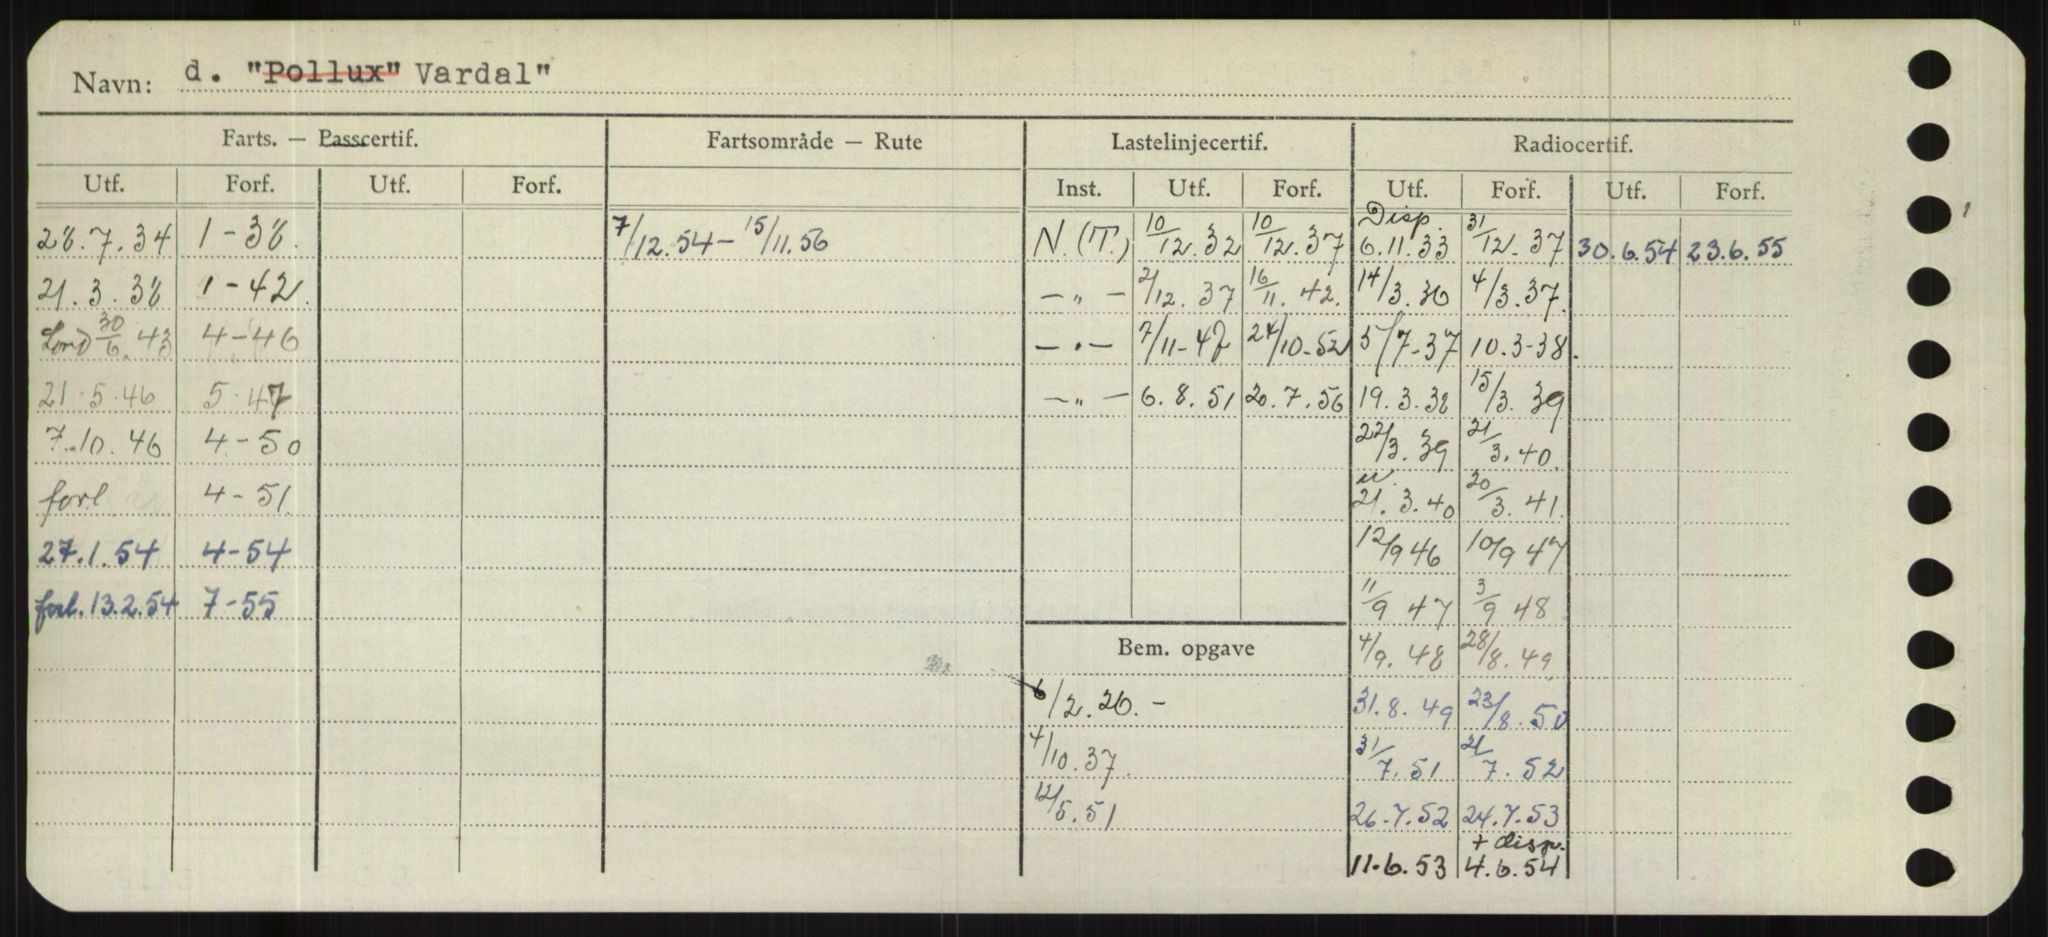 Navn: d. "Pollux" Vardal"
Farts. — Passcertif. Fartsområde — Rute Lastelinjecertif. Radiocertif.
Utf. Forf. Utf. Forf. Inst. Utf. Forf. Utf. Forf. Utf. Forf.
28.7.34 1-38. 7/12.54-15/11.56 N.(T.) 10/12.32 10/12.37 Disp. 6.11.33 31/12.37 30.6.54 23.6.55
21.3.38 1-42. -"- 2/12.37 16/11.42. 14/3.36 4/3.37.
Lond 30/6.43 4-46 -"- 7/11-47 24/10-52 5/7-37 10.3-38.
21.5.46 5.47 -"- 6.8.51 20.7.56 19.3.38 15/3.39
7.10.46 4-50 22/3.39 21/3.40.
forl 4-51 21.3.40 20/3.41.
27.1.54 4-54 12/9 46 10/9 47
forl.13.2.54 7-55 11/9 47 3/9 48
Bem. opgave 4/9.48 28/8.49
6/2.26.- 31.8.49 23/8.50
4/10.37 31/7.51 21/7.52
12/5.51 26.7.52 24.7.53
+ disp.
11.6.53 4.6.54